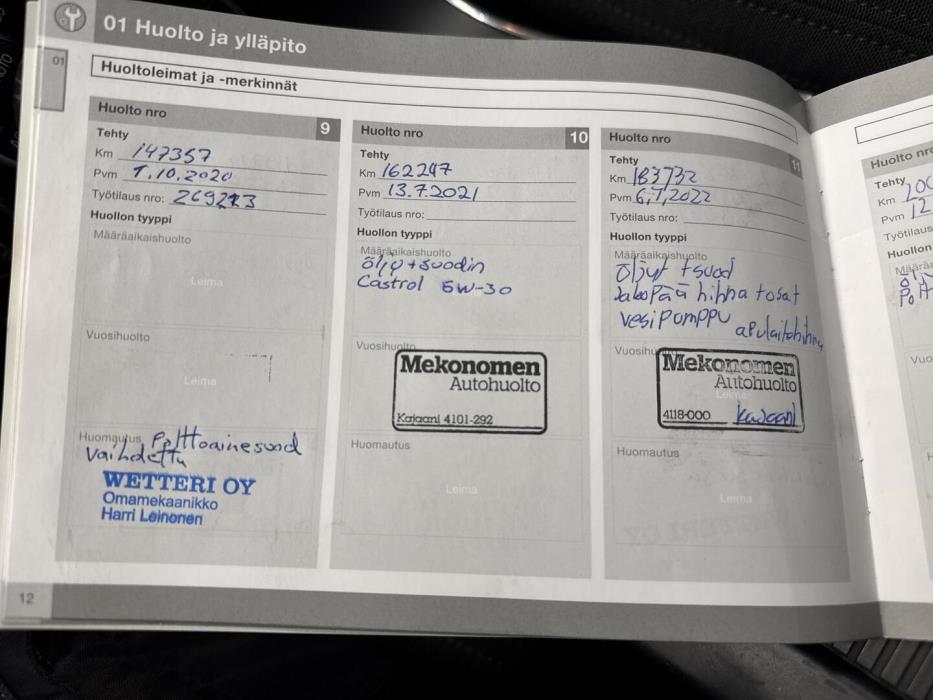 01 Huolto ja ylläpito
01
Huoltoleimat ja -merkinnät
Huolto nro 9
Tehty
Km 147357
Pvm 1.10.2020
Työtilaus nro: 269273
Huollon tyyppi
Määräaikaishuolto
Leima
Vuosihuolto
Leima
Huomautus Polttoainesuod
vaihdettu
WETTERI OY
Omamekaanikko
Harri Leinonen
Huolto nro 10
Tehty
Km 162247
Pvm 13.7.2021
Työtilaus nro:
Huollon tyyppi
Määräaikaishuolto
öljy + suodin
Castrol 5W-30
Vuosihuolto
Mekonomen
Autohuolto
Kajaani 4101-292
Huomautus
Leima
Huolto nro 11
Tehty
Km 183732
Pvm 6.7.2022
Työtilaus nro:
Huollon tyyppi
Määräaikaishuolto
öljyt + suod
Jakopää hihna + osat
vesipomppu apulaitehihna
Vuosihuolto
Mekonomen
Autohuolto
Leima
4118-000 Kajaani
Huomautus
Leima
12
Huolto nro
Tehty
Km
Pvm 12
Työtilaus
Huollon